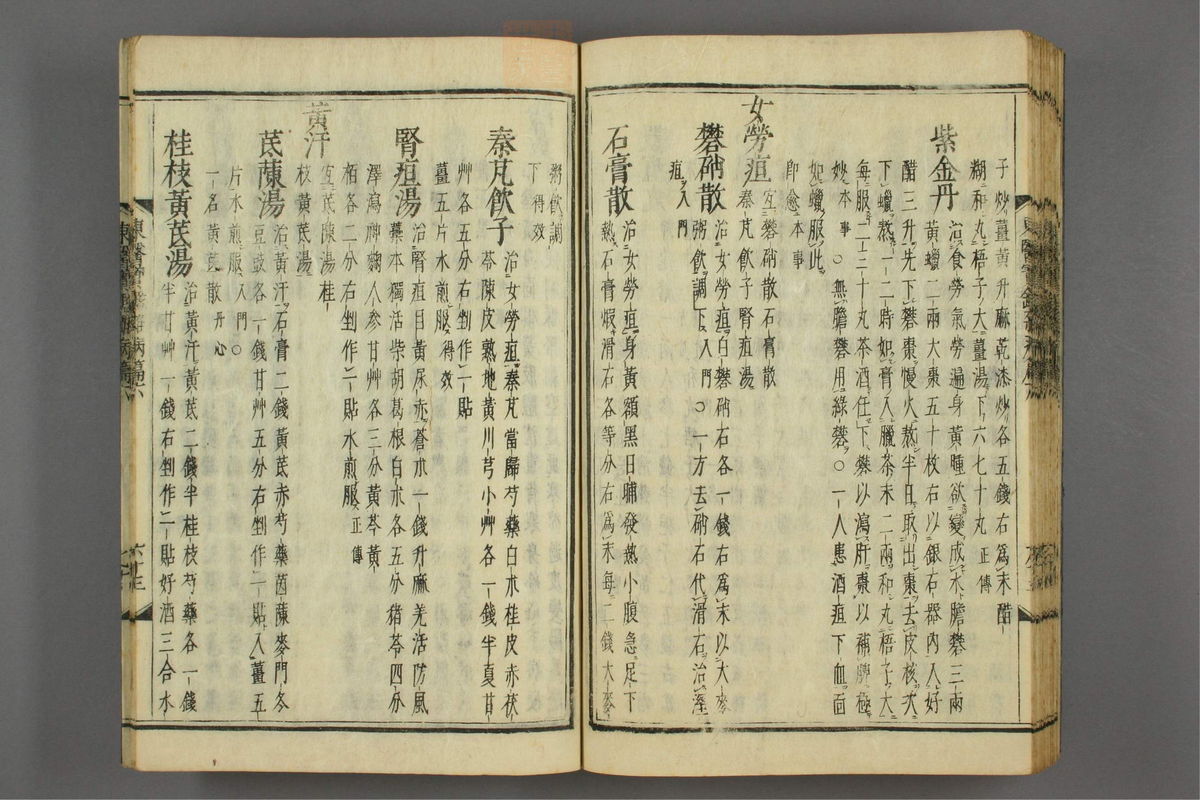 子炒薑黃升麻乾漆炒各五錢右爲末醋
糊和丸梧子大薑湯下六七十丸正傳
紫金丹
治食勞氣勞遍身黃腫欲變成水膽礬三兩
黃蠟二兩大棗五十枚右以銀石器內入好
醋三升先下礬棗慢火熬半日取出棗去皮核次
下蠟熬一二時如膏入臘茶末二兩和丸梧子大
每服二三十丸茶酒任下礬以瀉肝棗以補脾極
妙本事○無膽礬用綠礬○一人患酒疸下血面
如蠟服此
卽愈本事
女勞疸
宜礬硝散石膏散
秦艽飮子腎疸湯
礬硝散
治女勞疸白礬硝石各一錢右爲末以大麥
粥飮調下入門○一方去硝石代滑石治溼
疸入門
石膏散
治女勞疸身黃額黑日晡發熱小腹急足下
熱石膏煆滑石各等分右爲末每二錢大麥
粥飮調
下得效
秦艽飮子
治女勞疸秦艽當歸芍藥白朮桂皮赤茯
苓陳皮熟地黃川芎小艸各一錢半夏甘
艸各五分右剉作一貼
薑五片水煎服得效
腎疸湯
治腎疸目黃尿赤蒼朮一錢升麻羌活防風
藁本獨活柴胡葛根白朮各五分猪苓四分
澤瀉神麴人參甘艸各三分黃芩黃
栢各二分右剉作一貼水煎服正傳
黃汗
宜茋蔯湯桂
枝黃茋湯
茋蔯湯
治黃汗石膏二錢黃茋赤芍藥茵蔯麥門冬
豆豉各一錢甘艸五分右剉作一貼入薑五
片水煎服入門○
一名黃茋散丹心
桂枝黃茋湯
治黃汗黃茋二錢半桂枝芍藥各一錢
半甘艸一錢右剉作一貼好酒三合水